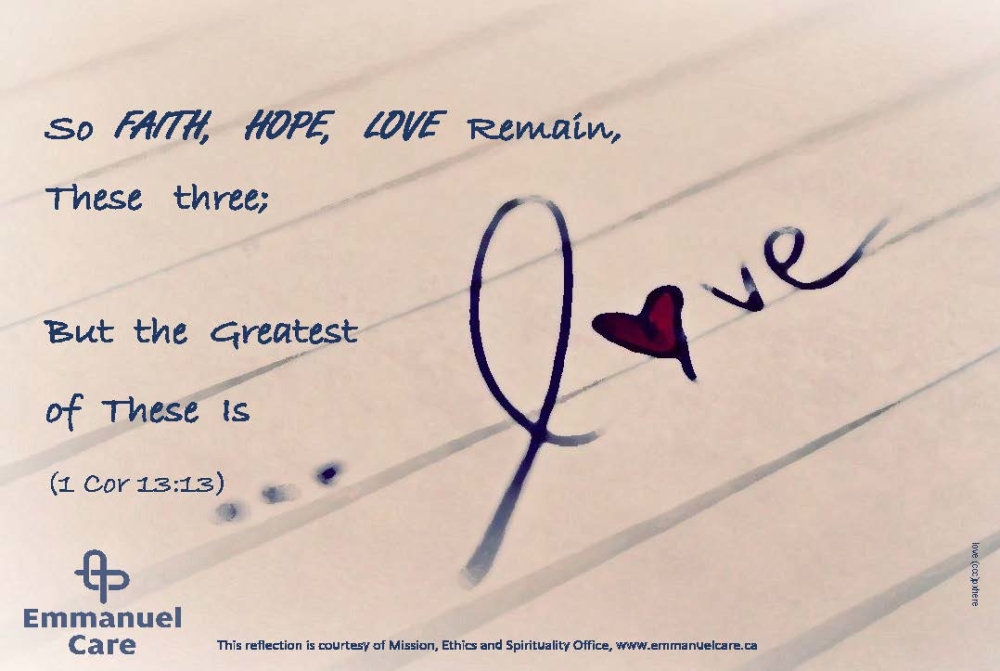 So FAITH, HOPE, LOVE Remain,
These three;
But the Greatest
of These Is
(1 Cor 13:13)
...
love
Emmanuel
Care
This reflection is courtesy of Mission, Ethics and Spirituality Office, www.emmanuelcare.ca
love (ccc)pxhere